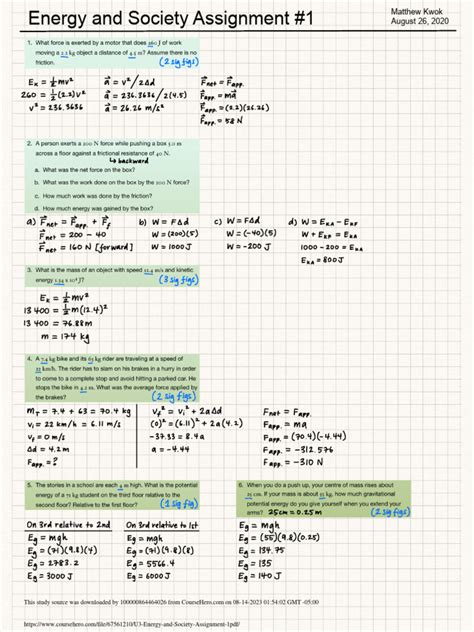 Energy and Society Assignment #1
Matthew Kwok
August 26, 2020
1. What force is exerted by a motor that does 260 J of work
moving a 2.2 kg object a distance of 4.5 m? Assume there is no
friction.
(2 sig figs)
Eₖ = ½mv²
260 = ½(2.2)v²
v² = 236.3636
a⃗ = v²/2Δd
a⃗ = 236.3636/2(4.5)
a⃗ = 26.26 m/s²
F⃗net = F⃗app.
F⃗app. = ma⃗
F⃗app. = (2.2)(26.26)
F⃗app. = 58 N
2. A person exerts a 200 N force while pushing a box 5.0 m
across a floor against a frictional resistance of 40 N.
↳ backward
a. What was the net force on the box?
b. What was the work done on the box by the 200 N force?
c. How much work was done by the friction?
d. How much energy was gained by the box?
a) F⃗net = F⃗app. + F⃗f
F⃗net = 200 - 40
F⃗net = 160 N [forward]
b) W = FΔd
W = (200)(5)
W = 1000 J
c) W = FΔd
W = (-40)(5)
W = -200 J
d) W = EKA - EKF
W + EKF = EKA
1000 - 200 = EKA
EKA = 800J
3. What is the mass of an object with speed 12.4 m/s and kinetic
energy 1.34 x 10⁴ J?
(3 sig figs)
Eₖ = ½mv²
13 400 = ½m(12.4)²
13 400 = 76.88m
m = 174 kg
4. A 7.4 kg bike and its 63 kg rider are traveling at a speed of
22 km/h. The rider has to slam on his brakes in a hurry in order
to come to a complete stop and avoid hitting a parked car. He
stops the bike in 4.2 m. What was the average force applied by
the brakes?
(2 sig figs)
mT = 7.4 + 63 = 70.4 kg
vi = 22 km/h = 6.11 m/s
vf = 0 m/s
Δd = 4.2 m
Fapp. = ?
vf² = vi² + 2aΔd
(0)² = (6.11)² + 2a(4.2)
-37.33 = 8.4a
a = -4.44
Fnet = Fapp.
Fapp. = ma
Fapp. = (70.4)(-4.44)
Fapp. = -312.576
Fapp. = -310 N
5. The stories in a school are each 4 m high. What is the potential
energy of a 71 kg student on the third floor relative to the
second floor? Relative to the first floor?
(1 sig fig)
On 3rd relative to 2nd
Eg = mgh
Eg = (71)(9.8)(4)
Eg = 2783.2
Eg = 3000 J
On 3rd relative to 1st
Eg = mgh
Eg = (71)(9.8)(8)
Eg = 5566.4
Eg = 6000 J
6. When you do a push up, your centre of mass rises about
25 cm. If your mass is about 55 kg, how much gravitational
potential energy do you give yourself when you extend your
arms?
25cm = 0.25m
(2 sig figs)
Eg = mgh
Eg = (55)(9.8)(0.25)
Eg = 134.75
Eg = 135
Eg = 140 J
This study source was downloaded by 100000864464026 from CourseHero.com on 08-14-2023 01:54:02 GMT -05:00
https://www.coursehero.com/file/67561210/U3-Energy-and-Society-Assignment-1pdf/